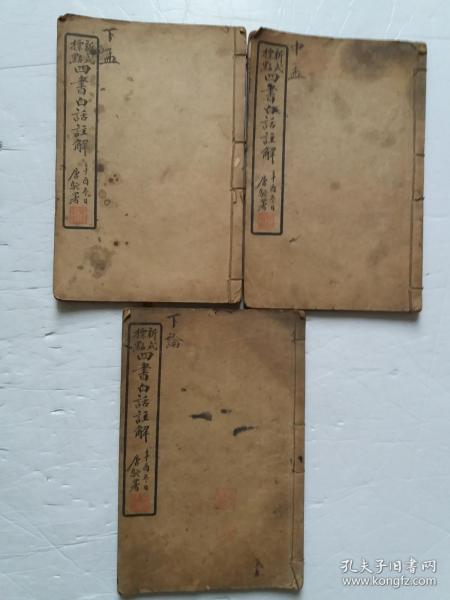 下孟
新式標點四書白話註解
辛酉冬日
唐駝署
中孟
新式標點四書白話註解
辛酉冬日
唐駝署
下論
新式標點四書白話註解
辛酉冬日
唐駝署
孔夫子旧书网
www.kongfz.com